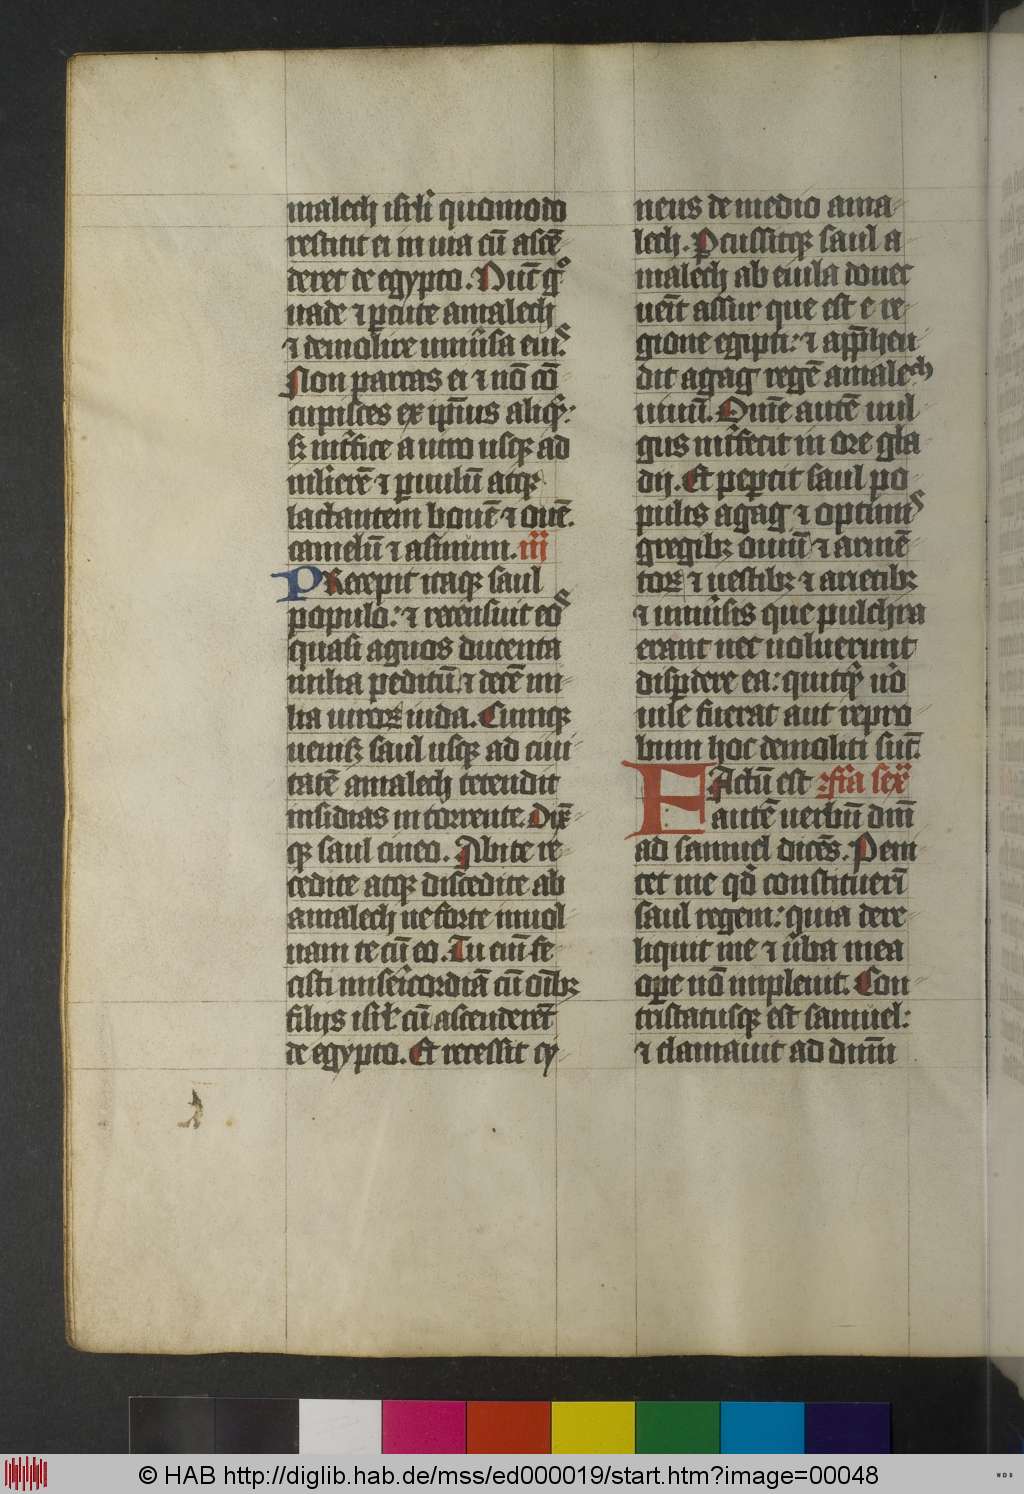 malech isrl̄i quomodo
restitit ei in uia cū ascē-
deret de egypto. Nūc gͦ
uade ⁊ ꝑcute amalech
⁊ demolire uniũsa eiꝰ.
Non parcas ei ⁊ nō cō-
cupisces ex ip̄ius aliqͥ:
sꝫ int̓fice a uiro usqꝫ ad
mlierē ⁊ ꝑuulū atqꝫ
lactantem bouē ⁊ ouē.
camelū ⁊ asinum. iij
PRecepit itaqꝫ saul
populo: ⁊ recensuit eoꝰ
quasi agnos ducenta
milia peditū ⁊ decē mi-
lia uiroꝝ iuda. Cumqꝫ
uenisꝫ saul usqꝫ ad ciui-
tatē amalech tetendit
insidias in torrente. Dix̄-
qꝫ saul cineo. Abite re-
cedite atqꝫ discedite ab
amalech ne forte inuol-
uam te cū eo. Tu eni̅ fe-
cisti misericordiā cū oīb̄ꝫ
filijs isrł cū ascenderēt
de egypto. Et recessit cy-
neus de medio ama-
lech. Ꝑcussitqꝫ saul a-
malech ab euila donec
ueīt assur que est e re-
gione egipti: ⁊ app̄hen-
dit agag regē amalech
uiuū. Om̄e autē uul-
gus int̓fecit in ore gla-
dij. Et peꝑcit saul po-
pulus agag ⁊ optimiꝰ
gregibꝫ ouiū ⁊ armē-
toꝝ ⁊ uestibꝫ ⁊ arietibꝫ
⁊ uniũsis que pulchra
erant nec uoluerunt
disꝑdere ea: quitqͥd u̓o
uile fuerat aut repro-
bum hoc demoliti sūt.
FActū est fr̄ia sex̄
autē uerbū dn̄i
ad samuel dicēs. Peni-
tet me qd̄ constituerī
saul regem: quia dere-
liquit me ⁊ ũba mea
oꝑe nō impleuit. Con-
tristatusqꝫ est samuel:
⁊ clamauit ad dn̄m
© HAB http://diglib.hab.de/mss/ed000019/start.htm?image=00048